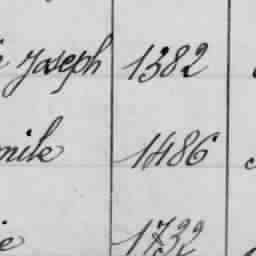 Joseph 1382
mile 1486
ie 1732